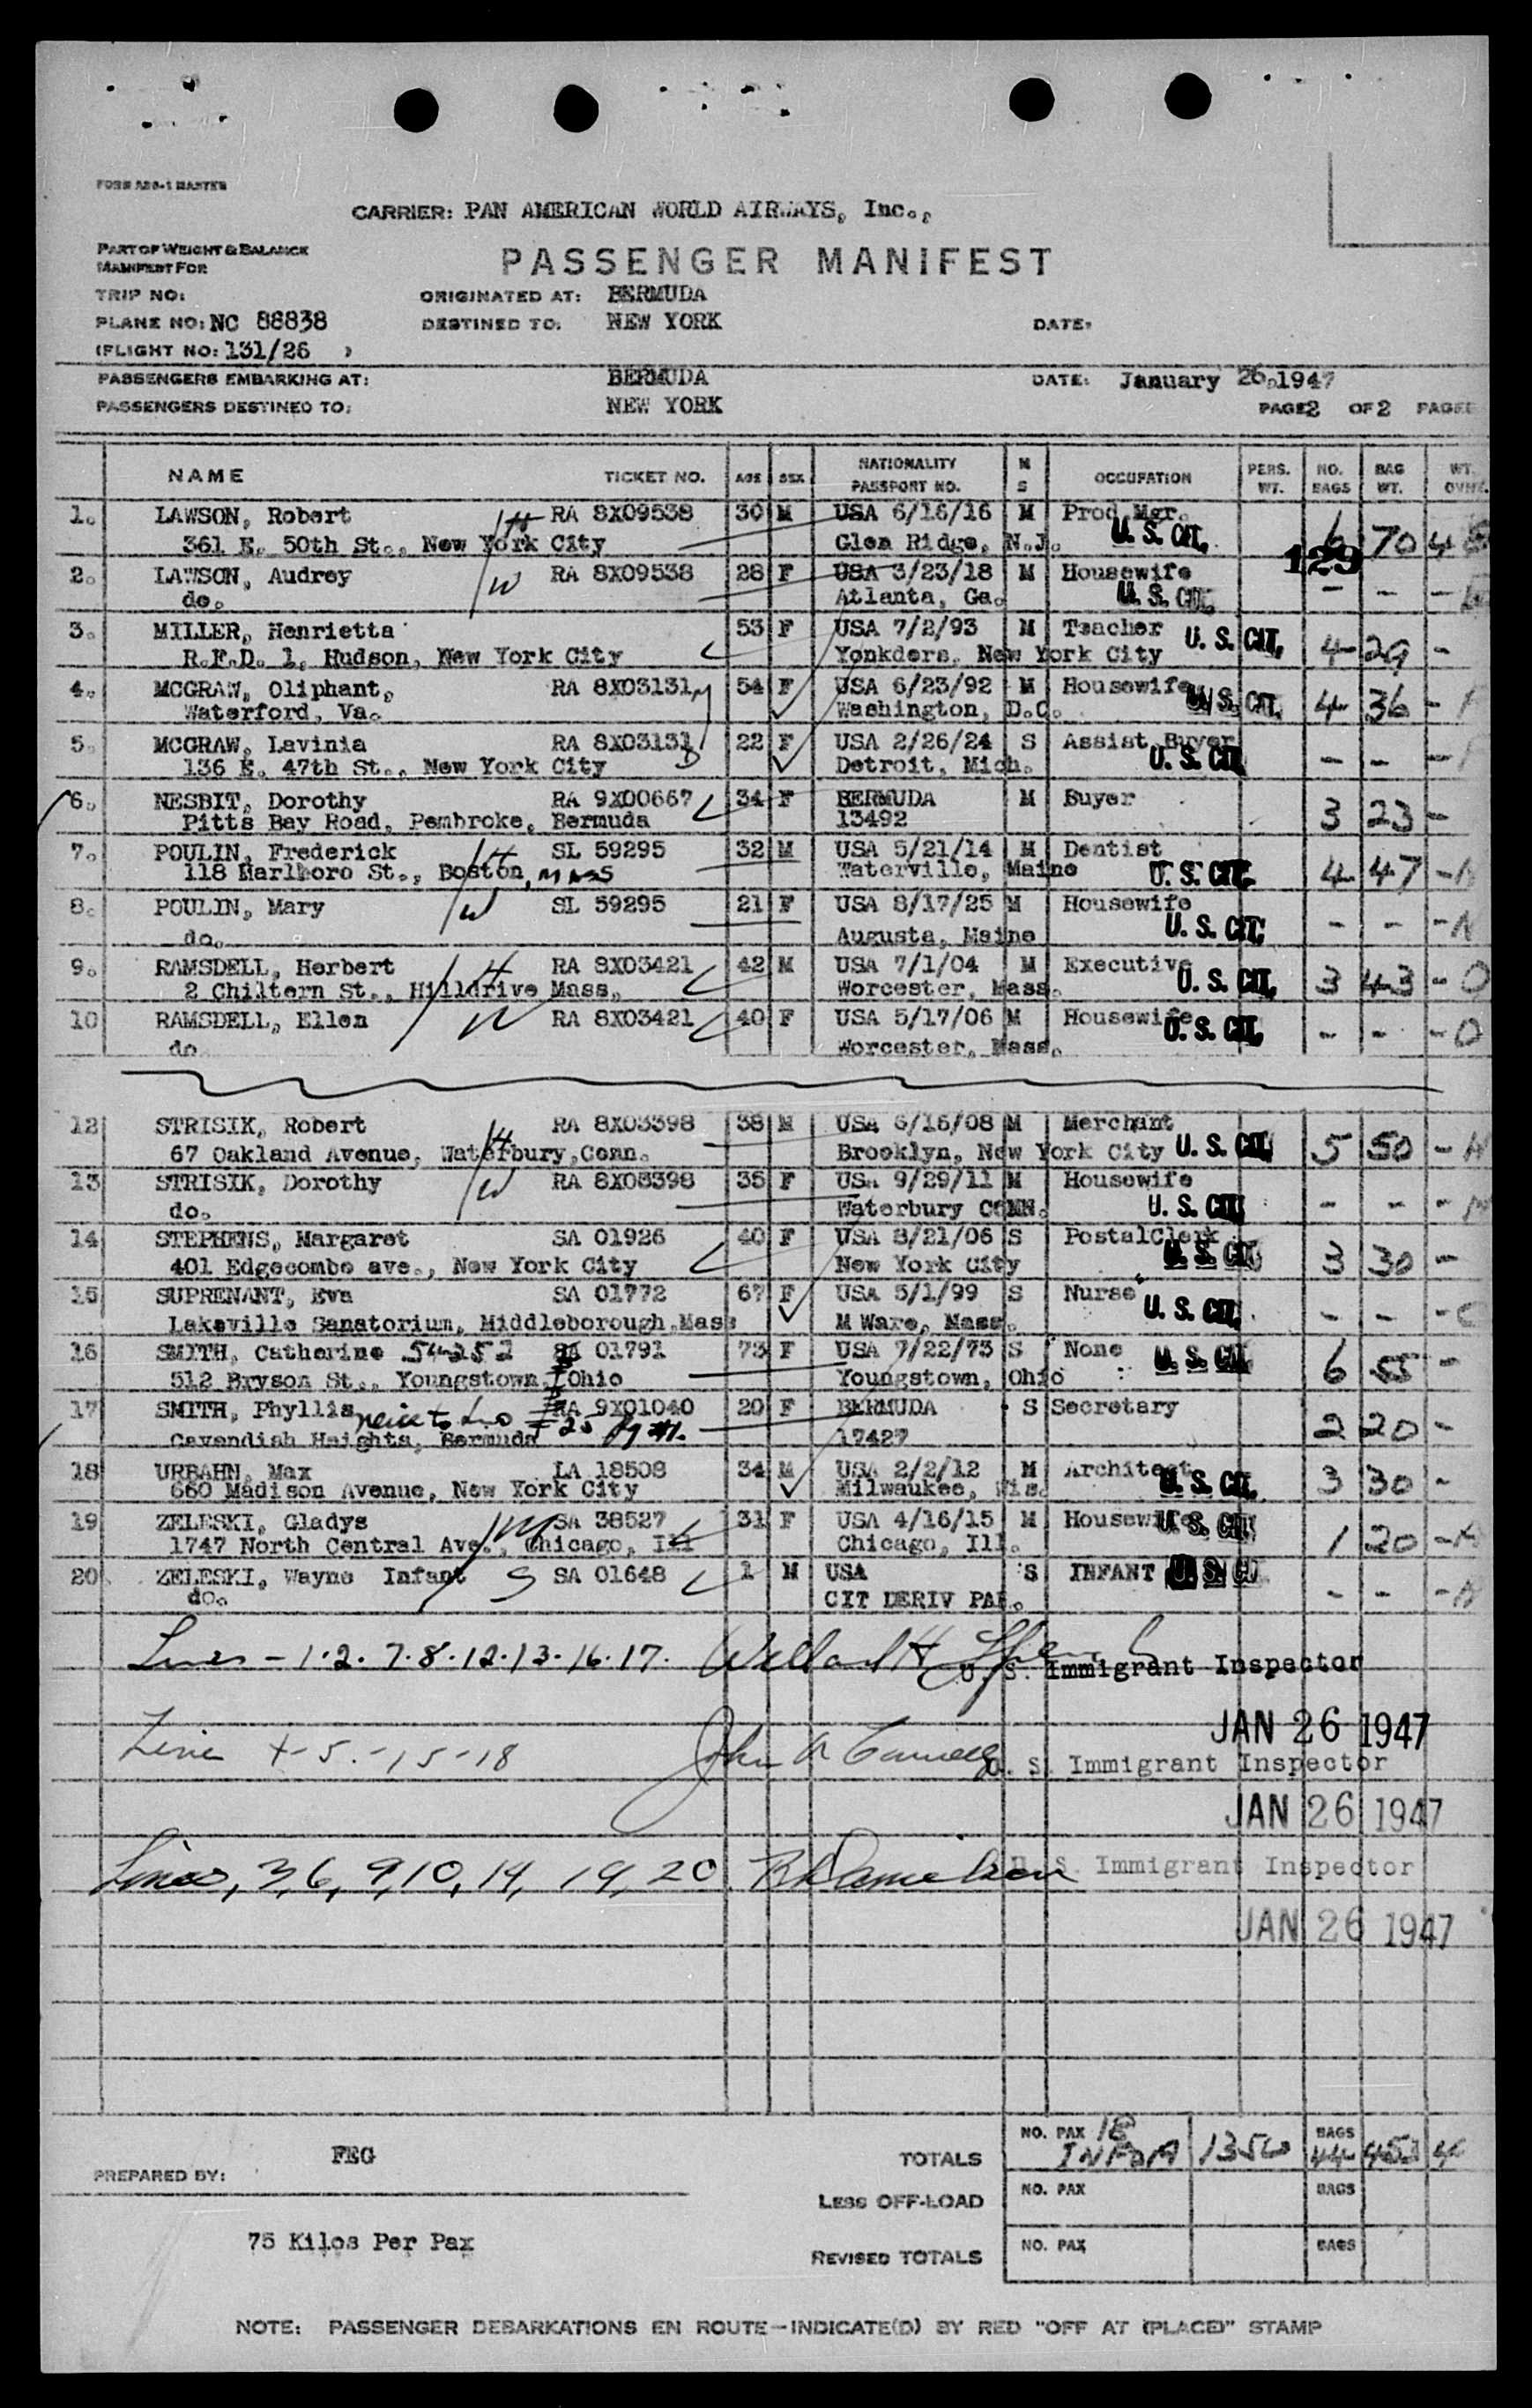 FORM ABS-1 MASTER
CARRIER: PAN AMERICAN WORLD AIRWAYS, Inc.,
PART OF WEIGHT & BALANCE
MANIFEST FOR
PASSENGER MANIFEST
TRIP NO:
ORIGINATED AT: BERMUDA
PLANE NO: NC 88838 DESTINED TO: NEW YORK DATE:
(FLIGHT NO: 131/26 )
PASSENGERS EMBARKING AT: BERMUDA DATE: January 26,1947
PASSENGERS DESTINED TO: NEW YORK PAGE 2 OF 2 PAGES
NAME TICKET NO. AGE SEX NATIONALITY PASSPORT NO. M S OCCUPATION PERS. WT. NO. BAGS BAG WT. WT. OVHT.
1. LAWSON, Robert H RA 8X09538 30 M USA 6/16/16 M Prod.Mgr. U. S. CIT. 6 70 4
361 E. 50th St., New York City Glen Ridge, N.J. 129
2. LAWSON, Audrey W RA 8X09538 28 F USA 3/23/18 M Housewife - - -
do. Atlanta, Ga. U. S. CIT.
3. MILLER, Henrietta 53 F USA 7/2/93 M Teacher U. S. CIT. 4 29 -
R.F.D. 1, Hudson, New York City Yonkders, New York City
4. MCGRAW, Oliphant, RA 8X03131 M 54 F USA 6/23/92 M Housewife U. S. CIT. 4 36 -
Waterford, Va. Washington, D.C.
5. MCGRAW, Lavinia RA 8X03131 D 22 F USA 2/26/24 S Assist Buyer - - -
136 E. 47th St., New York City Detroit, Mich. U. S. CIT
6. NESBIT, Dorothy RA 9X00667 34 F BERMUDA M Buyer 3 23 -
Pitts Bay Road, Pembroke, Bermuda 13492
7. POULIN, Frederick H SL 59295 32 M USA 5/21/14 M Dentist 4 47 -
118 Marlboro St., Boston, MASS Waterville, Maine U. S. CIT.
8. POULIN, Mary W SL 59295 21 F USA 8/17/25 M Housewife - - - N
do. Augusta, Maine U. S. CIT.
9. RAMSDELL, Herbert H RA 8X03421 42 M USA 7/1/04 M Executive U. S. CIT. 3 43 - O
2 Chiltern St., Hilldrive Mass. Worcester, Mass.
10 RAMSDELL, Ellen W RA 8X03421 40 F USA 5/17/06 M Housewife U. S. CIT. - - - O
do Worcester, Mass.
12 STRISIK, Robert H RA 8X03398 38 M USA 6/16/08 M Merchant U. S. CIT. 5 50 -
67 Oakland Avenue, Waterbury,Conn. Brooklyn, New York City
13 STRISIK, Dorothy W RA 8X03398 35 F USA 9/29/11 M Housewife - - -
do. Waterbury CONN. U. S. CIT
14 STEPHENS, Margaret SA 01926 40 F USA 8/21/06 S PostalClerk 3 30 -
401 Edgecombe ave., New York City New York City U. S. CIT
15 SUPRENANT, Eva SA 01772 67 F USA 5/1/99 S Nurse U. S. CIT. - - -
Lakeville Sanatorium, Middleborough,Mass M Ware, Mass.
16 SMITH, Catherine SA 01791 73 F USA 7/22/73 S None U. S. CIT 6 55 -
512 Bryson St., Youngstown, Ohio Youngstown, Ohio
17 SMITH, Phyllis RA 9X01040 20 F BERMUDA S Secretary 2 20 -
Cavendish Heights, Bermuda 17427
18 URBAHN, Max LA 18508 34 M USA 2/2/12 M Architect 3 30 -
660 Madison Avenue, New York City Milwaukee, Wis. U. S. CIT.
19 ZELESKI, Gladys M SA 38527 31 F USA 4/16/15 M Housewife U. S. CIT 1 20 -
1747 North Central Ave., Chicago, Ill Chicago, Ill.
20 ZELESKI, Wayne Infant S SA 01648 1 M USA S INFANT U. S. CIT - - -
do. CIT DERIV PAR.
Lines - 1.2.7.8.12.13.16.17.
U. S. Immigrant Inspector
JAN 26 1947
Line 4-5.-15-18 John A
U. S. Immigrant Inspector
JAN 26 1947
Lines, 3,6, 9,10, 14, 19, 20
U. S. Immigrant Inspector
JAN 26 1947
PREPARED BY: FEG
TOTALS NO. PAX 18 1350 BAGS 44 453 4
LESS OFF-LOAD NO. PAX BAGS
75 Kilos Per Pax
REVISED TOTALS NO. PAX BAGS
NOTE: PASSENGER DEBARKATIONS EN ROUTE-INDICATE(D) BY RED "OFF AT (PLACE)" STAMP